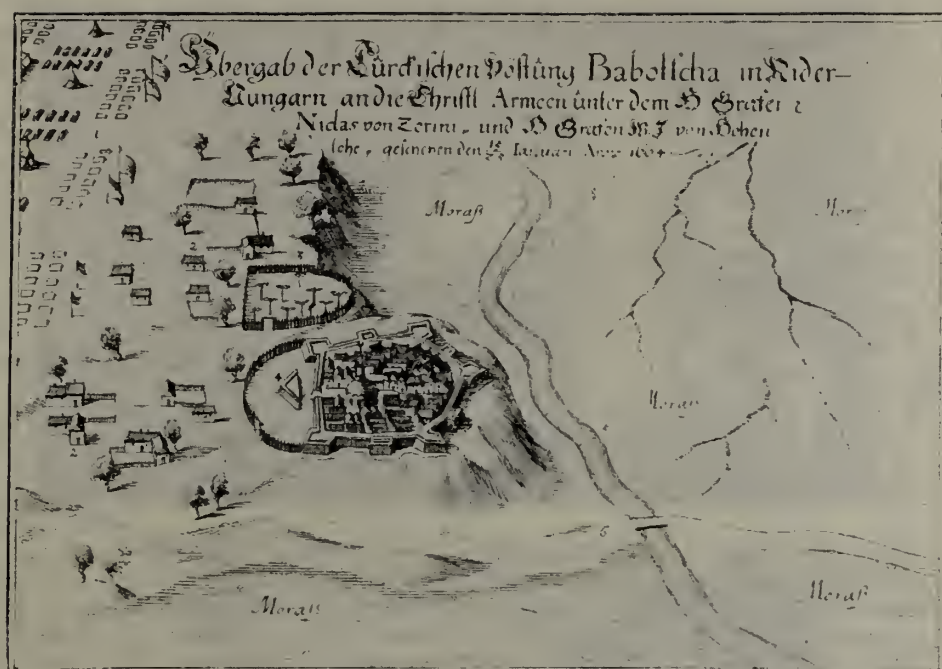 Übergab der Türckischen Vöstung Babolscha in Nider-
Hungarn an die Christl Armeen unter dem H Grafen
Niclas von Zerini, und H Grafen W. J von Hohen
lohe, geschehen den Januari Anno 1664
Moraß
Moraß
Moraß
Moraß
Moraß
2
2
5
6